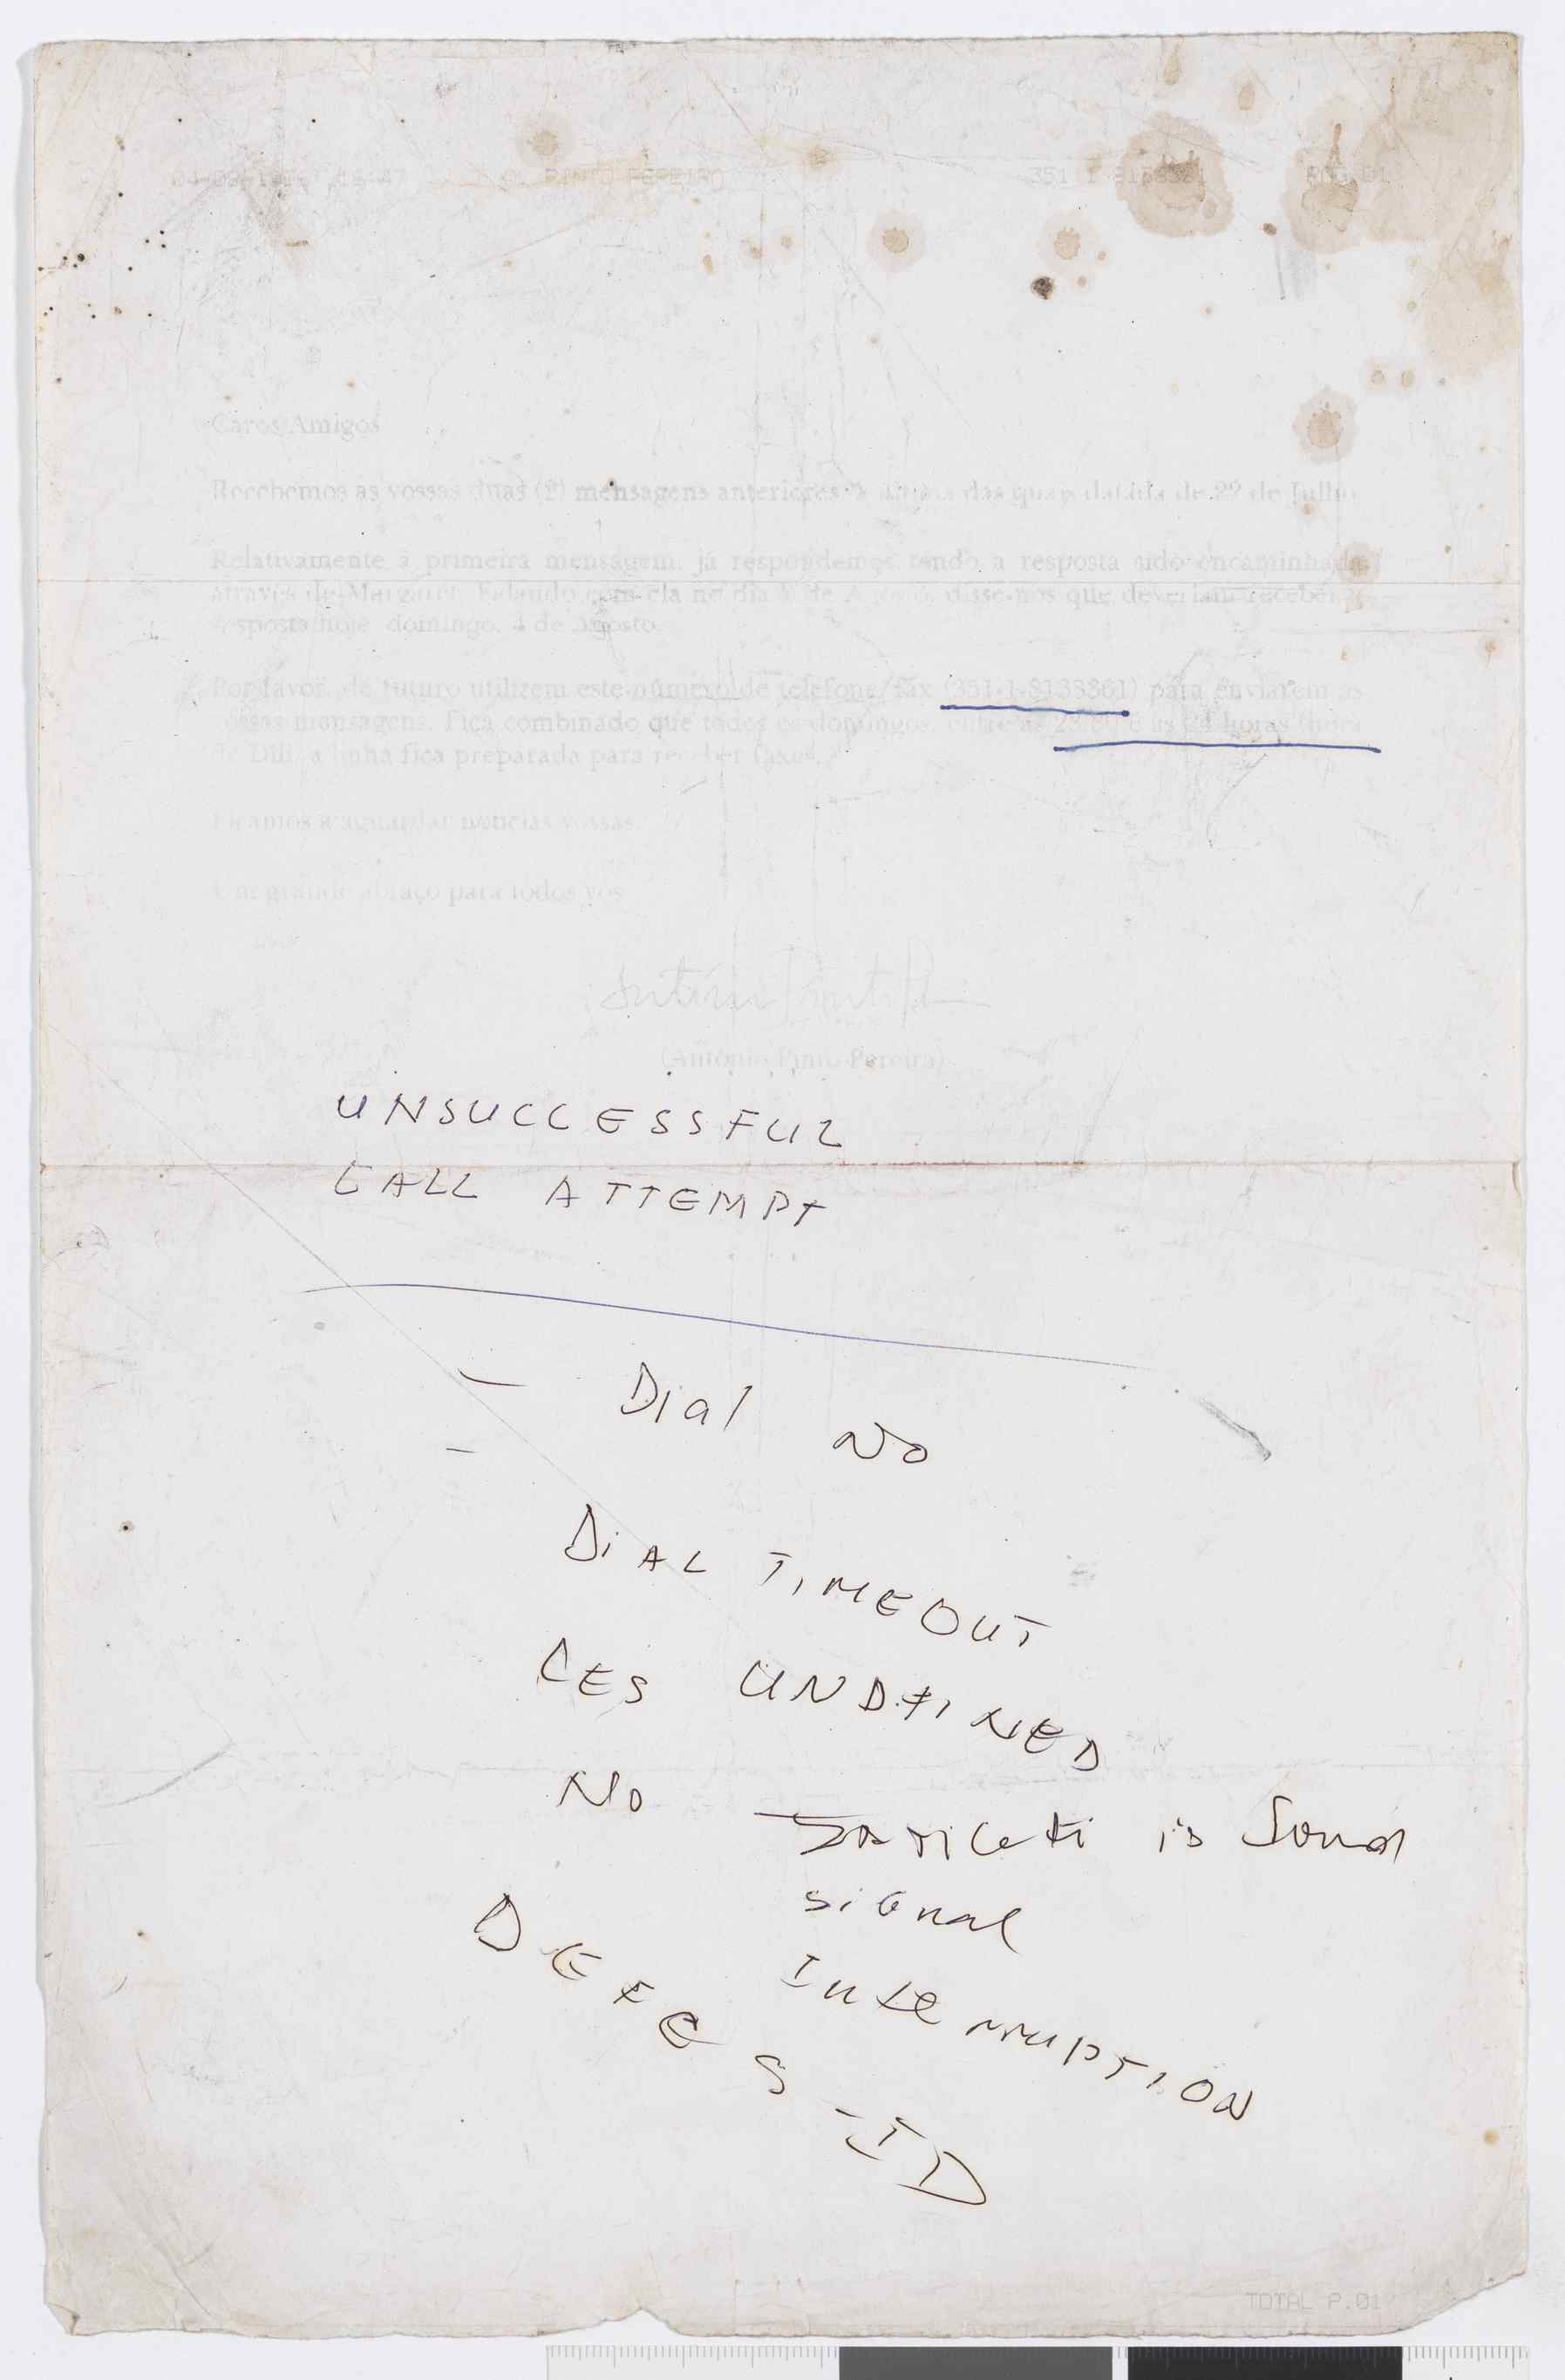 PINTO PEREIRO 351 1
Caros Amigos
Recebemos as vossas duas (2) mensagens anteriores a das quais datada de 29 de Julho
Relativamente à primeira mensagem, já respondemos tendo a resposta sido encaminhada
através de Margaret. Falando com ela no dia de Agosto, disse-nos que deveriam receber a
resposta hoje domingo, 4 de Agosto.
Por favor, de futuro utilizem este número de telefone/fax (351-1-8138361) para enviarem as
vossas mensagens. Fica combinado que todos os domingos, entre as e as 24 horas (hora
de Dili) a linha fica preparada para receber faxes.
Ficamos a aguardar notícias vossas.
Um grande abraço para todos vós
(António Pinto Pereira)
UNSUCCESSFUL
CALL ATTEMPT
- Dial No
-
DiAL TIMEOUT
LES UNDFINED
No is
siGnal
InteRRUPTION
DEFES-ID
TOTAL P.01